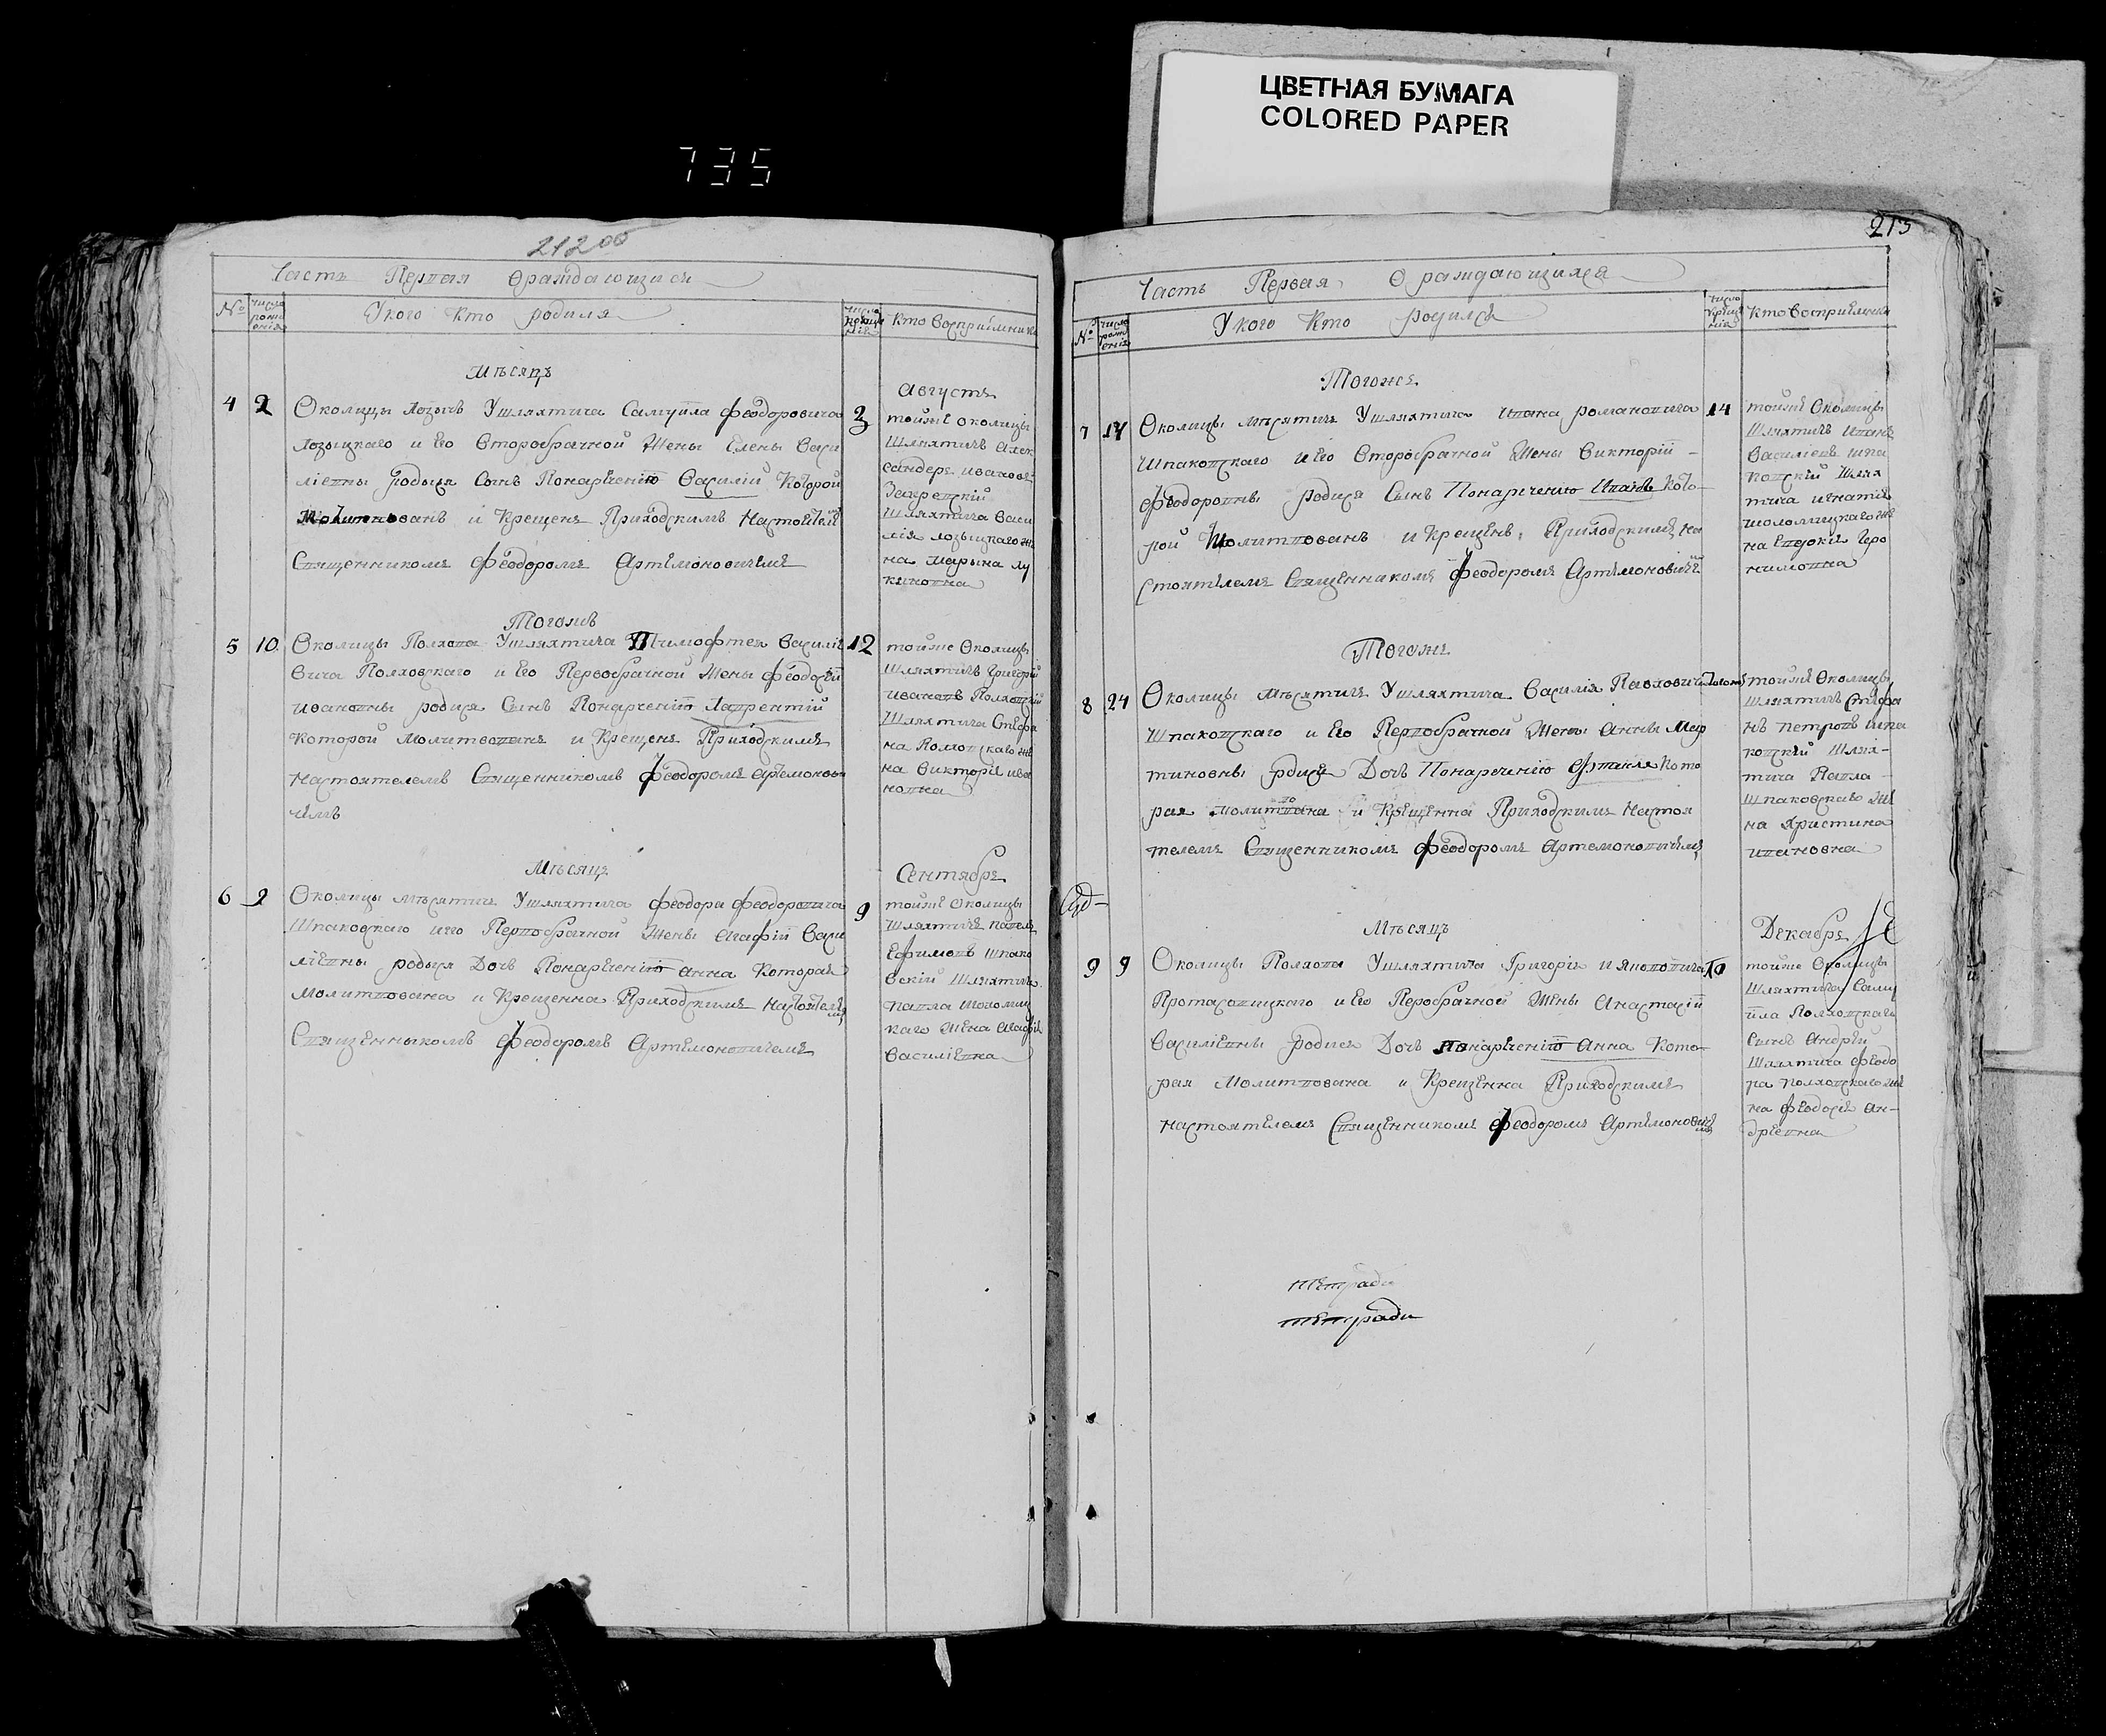 ЦВЕТНАЯ БУМАГА
COLORED PAPER
735
212 об
Часть Первая О раждающихся
№
число рожденія
У кого кто родился
число крещенія
кто восприемники
Мѣсяцъ
Августъ
4 2
Околицы Лозычъ У шляхтича Самуила Феодоровича
Лозыцкаго и Его Второбрачной Жены Елены Васи
ліевны родыся Сынъ Понареченію Василій Которой
Молитвованъ и Крещенъ Приходскимъ Настоятелемъ
Священникомъ Феодоромъ Артемоновичемъ
3
тойже Околицы
Шляхтичъ Алек
сандеръ Ивановъ
Закревскій
Шляхтича Васи
лія Лозыцкаго же
на Марына Лу
киновна
Тогожъ
5 10
Околицы Полхова У шляхтича Тимофтея Василіе
вича Полховскаго и Его Первобрачной Жены Феодосіи
Ивановны родися Сынъ Понареченію Лаврентій
Которой Молитвованъ и Крещенъ Приходскимъ
Настоятелемъ Священникомъ Феодоромъ Артемонови
чемъ
12
тойже Околицы
Шляхтичъ Григорій
Ивановъ Полховскій
Шляхтича Стефа
на Полховскаго же
на Викторія Ива
новна
Мѣсяцъ
Сентябрь
6 2
Околицы Мѣсятичъ У шляхтича Феодора Феодоровича
Шпаковскаго и его Первобрачной Жены Агафіи Васи
ліевны родыся Дочь Понареченію Анна Которая
Молитвована и Крещенна Приходскимъ Настоятелемъ
Священныкомъ Феодоромъ Артемоновичемъ
9
тойже Околицы
Шляхтичъ Павелъ
Ефимовъ Шпако
вскій Шляхтича
Павла Шоломиц
каго Жена Агафія
Василіевна
213
Часть Первая О раждающихся
№
число рожденія
У кого Кто родился
число крещенія
Кто Восприемники
Тогоже
7 14
Околицы Мѣсятичъ У шляхтича Ивана Романовича
Шпаковскаго и Его Второбрачной Жены Викторіи -
Феодоровны родися Сынъ Понареченію Иванъ Кото-
рой Молитвованъ и Крещенъ Приходскимъ На
стоятелемъ Священникомъ Феодоромъ Артемоновичемъ
14
тойже Околицы
Шляхтичъ Иванъ
Василіевъ Шпа
ковскій Шлях
тича Игнатія
Шоломицкаго же
на Евдокія Геро
нимовна
Тогоже
8 24
Околицы Мѣсятичъ У шляхтича Василія Павловича
Шпаковскаго и Его Первобрачной Жены Анны Мар
тиновны родися Дочь Понареченію Кото
рая Молитвована и Крещенна Приходскимъ Настоя
телемъ Священникомъ Феодоромъ Артемоновичемъ
Тогожъ
тойже Околицы
Шляхтичъ Стефа
нъ Петровъ Шпа
ковскій Шлях-
тича Павла
Шпаковскаго же
на Христина
Ивановна
Мѣсяцъ
Декабрь
9 9
Околицы Полхова У шляхтича Григорія Иянововича
Протасовицкаго и Его Перобрачной Жены Анастасіи
Василіевны родися Дочь Понареченію Анна Кото-
рая Молитвована и Крещенна Приходскимъ
Настоятелемъ Священникомъ Феодоромъ Артемоновичемъ
10
тойже Околицы
Шляхтича Саму
ила Полховскаго
Сынъ Андрей
Шляхтича Феодо
ра Полховскаго же
на Феодосія Ан-
дріевна
тетради
тетради